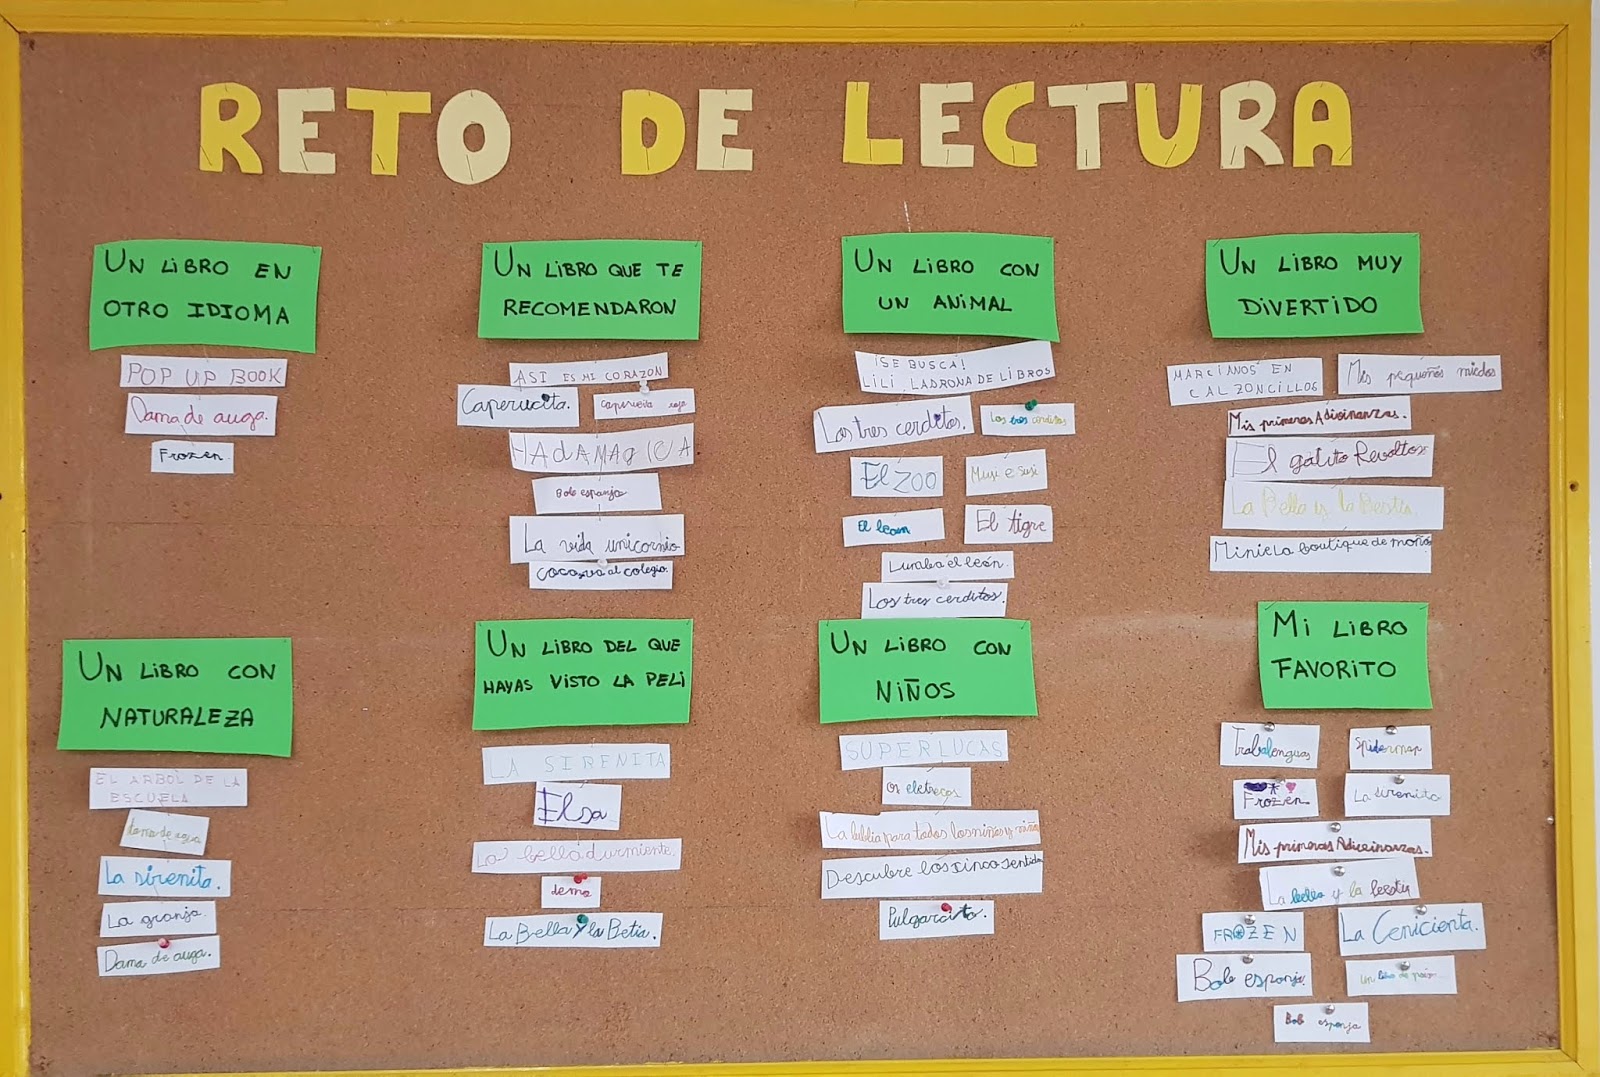 RETO DE LECTURA
UN LIBRO EN
OTRO IDIOMA
POP UP BOOK
Dama de auga.
Frozen.
UN LIBRO QUE TE
RECOMENDARON
ASI ES MI CORAZON
Caperucita.
roja
HADAMAGICA
Bob esponja
La vida unicornio
coca va al colegio.
UN LIBRO CON
UN ANIMAL
¡SE BUSCA!
LILI, LADRONA DE LIBROS
Los tres cerditos.
Los tres cerditos
El ZOO
Musi e Susi
El leon
El tigre
el león.
Los tres cerditos.
UN LIBRO MUY
DIVERTIDO
MARCIANOS EN
CALZONCILLOS
Mis pequeños miedos
Mis primeras Adivinanzas.
El gatito Revoltoso
La Bella y la Bestia.
Minie La boutique de moño
UN LIBRO CON
NATURALEZA
EL ARBOL DE LA
ESCUELA
dama de agua
La sirenita.
La granja.
Dama de auga.
UN LIBRO DEL QUE
HAYAS VISTO LA PELI
LA SIRENITA
Elsa
La bella durmiente.
La Bella y la Betia.
UN LIBRO CON
NIÑOS
SUPERLUCAS
Os
La biblia para todos los niños y niña
Descubre los cinco sentidos
Pulgarcito.
MI LIBRO
FAVORITO
Trabalenguas
Spiderman
Frozen
La sirenita
Mis primeras Adivinanzas.
La bella y la bestia
FROZEN
La Cenicienta.
Bob esponja.
un libro de
Bob esponja